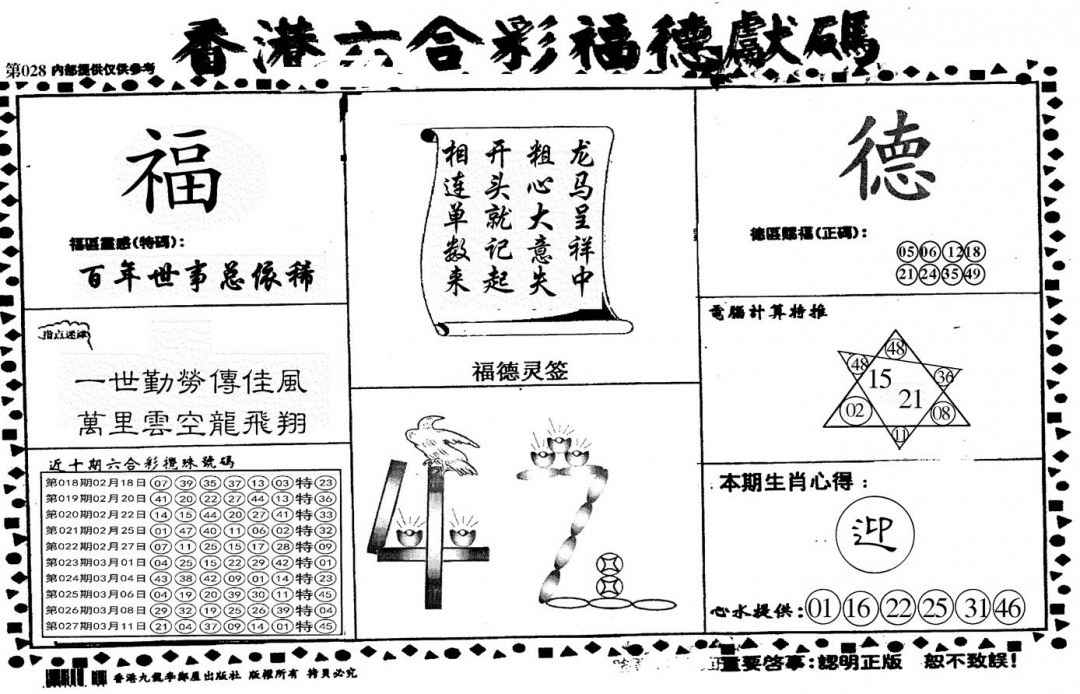 香港六合彩福德獻碼
第028 内部提供仅供参考
福
福區靈感(特碼):
百年世事总依稀
指点迷津
一世勤勞傳佳風
萬里雲空龍飛翔
近十期六合彩攪珠號碼
第018期02月18日 07 39 35 37 13 03 特 23
第019期02月20日 41 20 22 27 44 13 特 36
第020期02月22日 14 15 44 20 27 41 特 33
第021期02月25日 01 47 40 11 06 02 特 32
第022期02月27日 07 11 25 15 17 28 特 09
第023期03月01日 04 25 15 22 29 42 特 01
第024期03月04日 43 38 42 09 01 14 特 23
第025期03月06日 04 19 20 39 30 11 特 45
第026期03月08日 29 32 19 25 26 39 特 04
第027期03月11日 21 04 37 09 14 01 特 45
龙马呈祥中
粗心大意失
开头就记起
相连单数来
福德灵签
42
德
德區賜福(正碼):
05 06 12 18
21 24 35 49
電腦計算特推
48
48
36
15
21
02
08
11
本期生肖心得:
迎
心水提供: 01 16 22 25 31 46
香港九龍李鄭屋出版社 版權所有 拷貝必究
重要啓事:認明正版 恕不致誤!